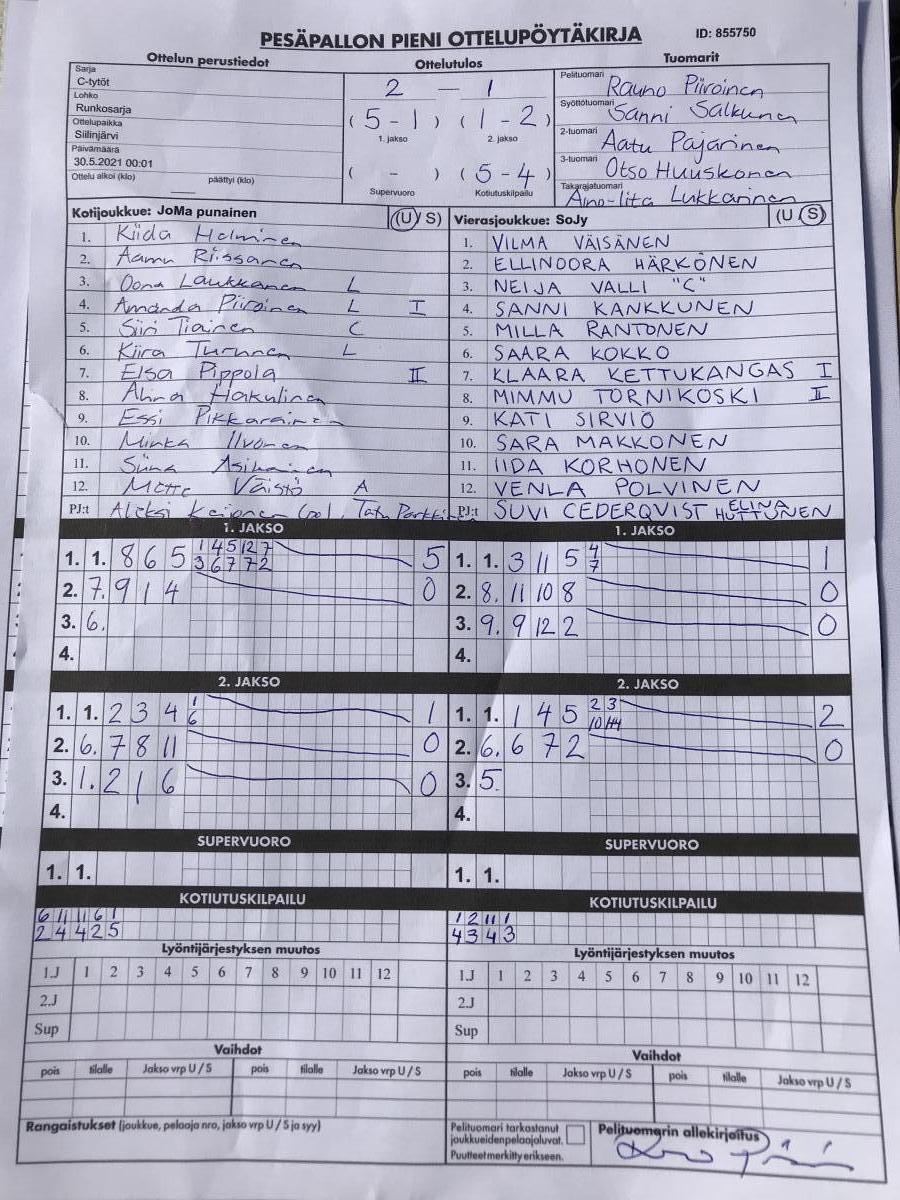 PESÄPALLON PIENI OTTELUPÖYTÄKIRJA
ID: 855750
Ottelun perustiedot
Ottelutulos
Tuomarit
Sarja
C-tytöt
Lohko
Runkosarja
Ottelupaikka
Siilinjärvi
Päivämäärä
30.5.2021 00:01
Ottelu alkoi (klo) päättyi (klo)
2 — 1
( 5 - 1 ) ( 1 - 2 )
1. jakso 2. jakso
( - ) ( 5 - 4 )
Supervuoro Kotiutuskilpailu
Pelituomari Rauno Piiroinen
Syöttötuomari Sanni Salkunen
2-tuomari Aatu Pajarinen
3-tuomari Otso Huuskonen
Takarajatuomari Aino-Iita Lukkarinen
Kotijoukkue: JoMa punainen (U / S)
1. Kiida Holminen
2. Aamu Riissanen
3. Oona Laukkanen L
4. Amanda Piiroinen L I
5. Siiri Tiainen C
6. Kiira Turunen L
7. Elsa Pippola II
8. Alina Hakulinen
9. Essi Pikkarainen
10. Minka Ilvonen
11. Siina Asikainen
12. Mette Väistö A
PJ:t Aleksi
Vierasjoukkue: SoJy (U / S)
1. VILMA VÄISÄNEN
2. ELLINOORA HÄRKÖNEN
3. NEIJA VALLI "C"
4. SANNI KANKKUNEN
5. MILLA RANTONEN
6. SAARA KOKKO
7. KLAARA KETTUKANGAS I
8. MIMMU TORNIKOSKI II
9. KATI SIRVIÖ
10. SARA MAKKONEN
11. IIDA KORHONEN
12. VENLA POLVINEN
PJ:t SUVI CEDERQVIST ELINA HUTTUNEN
1. JAKSO
1. 1. 8 6 5 1 4 5 12 7 5
3 6 7 7 2
2. 7. 9 1 4 0
3. 6.
4.
1. JAKSO
1. 1. 3 11 5 4 1
7
2. 8. 11 10 8 0
3. 9. 9 12 2 0
4.
2. JAKSO
1. 1. 2 3 4 1 1
6
2. 6. 7 8 11 0
3. 1. 2 1 6 0
4.
2. JAKSO
1. 1. 1 4 5 2 3 2
10
2. 6. 6 7 2 0
3. 5.
4.
SUPERVUORO
1. 1.
SUPERVUORO
1. 1.
KOTIUTUSKILPAILU
6 11 11 6 1
2 4 4 2 5
KOTIUTUSKILPAILU
1 2 11 1
4 3 4 3
Lyöntijärjestyksen muutos
1.J 1 2 3 4 5 6 7 8 9 10 11 12
2.J
Sup
Lyöntijärjestyksen muutos
1.J 1 2 3 4 5 6 7 8 9 10 11 12
2.J
Sup
Vaihdot
pois tilalle Jakso vrp U / S pois tilalle Jakso vrp U / S
Vaihdot
pois tilalle Jakso vrp U / S pois tilalle Jakso vrp U / S
Rangaistukset (joukkue, pelaaja nro, jakso vrp U / S ja syy)
Pelituomari tarkastanut
joukkueidenpelaajaluvat.
Puutteet merkitty erikseen.
Pelituomarin allekirjoitus